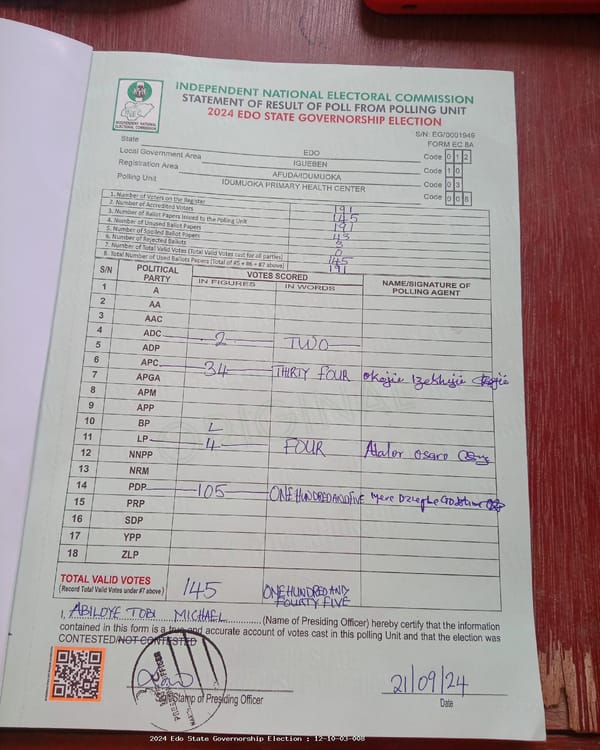 INDEPENDENT NATIONAL ELECTORAL COMMISSION
STATEMENT OF RESULT OF POLL FROM POLLING UNIT
2024 EDO STATE GOVERNORSHIP ELECTION
INDEPENDENT NATIONAL ELECTORAL COMMISSION
S/N: EG/0001949
FORM EC 8A
State EDO Code 0 1 2
Local Government Area IGUEBEN Code 1 0
Registration Area AFUDA/IDUMUOKA Code 0 3
Polling Unit IDUMUOKA PRIMARY HEALTH CENTER Code 0 0 8
1. Number of Voters on the Register 191
2. Number of Accredited Voters 145
3. Number of Ballot Papers Issued to the Polling Unit 191
4. Number of Unused Ballot Papers 43
5. Number of Spoiled Ballot Papers 3
6. Number of Rejected Ballots 0
7. Number of Total Valid Votes (Total Valid Votes cast for all parties) 145
8. Total Number of Used Ballots Papers (Total of #5 + #6 + #7 above) 191
S/N POLITICAL PARTY VOTES SCORED NAME/SIGNATURE OF POLLING AGENT
IN FIGURES IN WORDS
1 A
2 AA
3 AAC
4 ADC 2 TWO
5 ADP
6 APC 34 THIRTY FOUR Okojie
7 APGA
8 APM
9 APP
10 BP
11 LP 4 FOUR Osaro
12 NNPP
13 NRM
14 PDP 105 ONE HUNDRED AND FIVE
15 PRP
16 SDP
17 YPP
18 ZLP
TOTAL VALID VOTES 145 ONE HUNDRED AND FOURTY FIVE
(Record Total Valid Votes under #7 above)
I, ABILOYE TOBI MICHAEL (Name of Presiding Officer) hereby certify that the information
contained in this form is a true and accurate account of votes cast in this polling Unit and that the election was
CONTESTED/NOT CONTESTED
Stamp of Presiding Officer
21/09/24
Date
2024 Edo State Governorship Election : 12-10-03-008